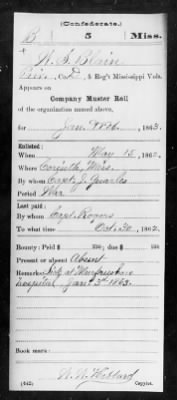 (Confederate.)
B 5 Miss.
W. S. Blain
Pvt., Co. D, 5 Reg't Mississippi Vols.
Appears on
Company Muster Roll
of the organization named above,
for Jan. Feb., 1863.
Enlisted:
When May 15, 1862.
Where Corinth, Miss.
By whom Capt. J. Quarles
Period War
Last paid:
By whom Capt. Rogers
To what time Oct. 30, 1862.
Bounty: Paid $ 100; due $ 100
Present or absent Absent
Remarks: Left at Murfreesboro
hospital Jan'y 3rd 1863.
Book mark:
W. W. Hibbard
(642) Copyist.